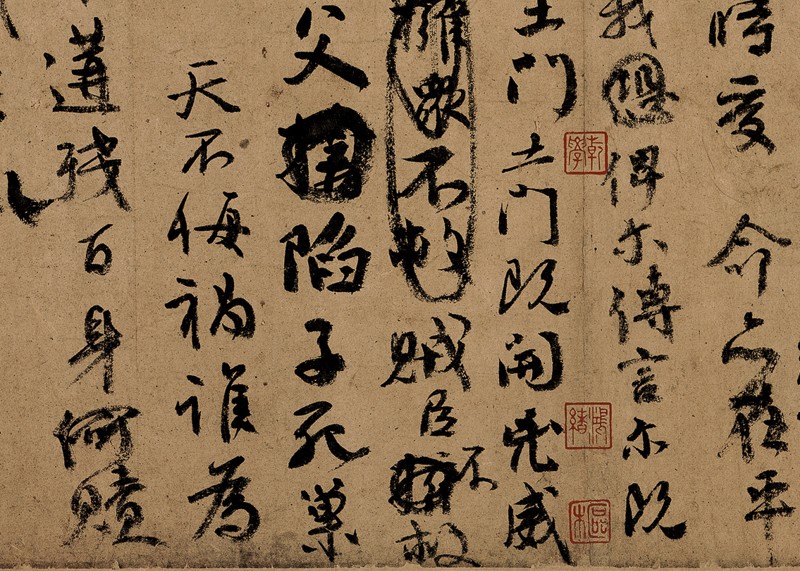 時受 命亦在平
我俾尔傳言尔既
土門土門既開凶威
擁衆不救賊臣擁不救
父陷子死巢
天不悔禍誰為
遘殘百身何贖
乾學
鴻緒